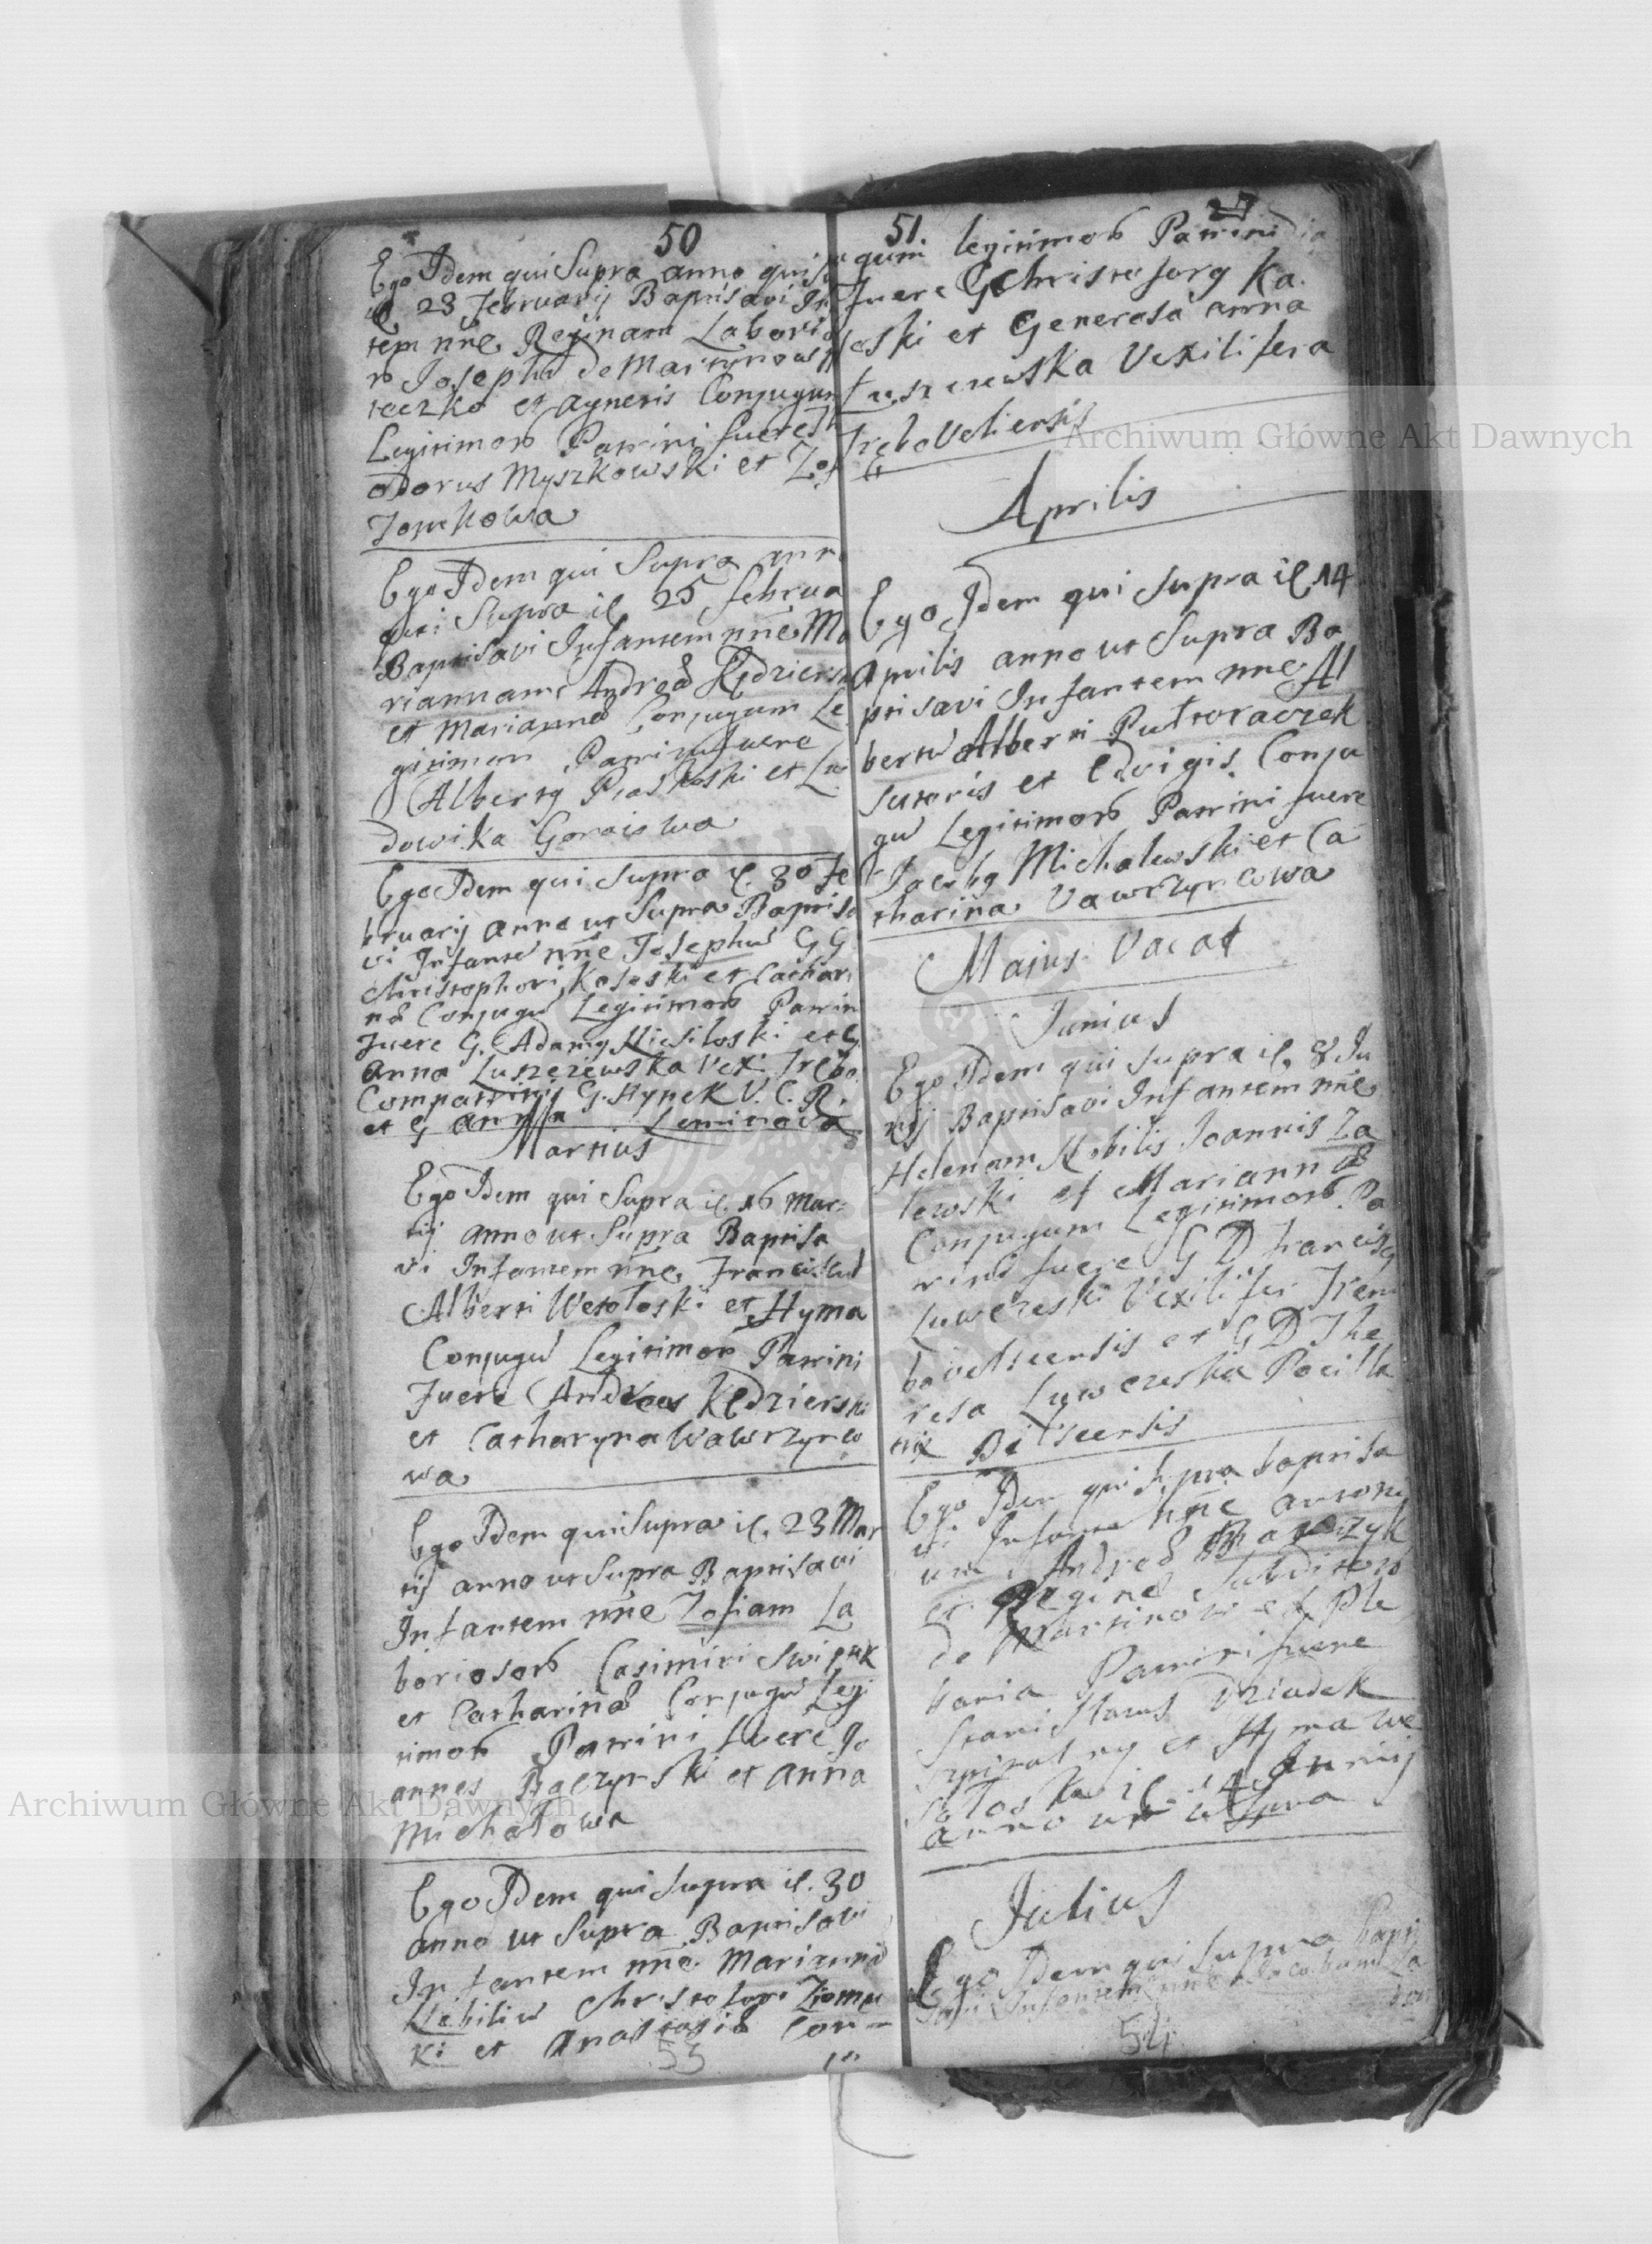 50
Ego Idem qui Supra anno qui su
il 23 Februarij Baptisavi In
tem nne Reginam Laborio
ro Josephi de Martynow
teczko et Agnetis Conjugum
Legitimor Patrini fuere
odorus Myszkowski et Zof
Jonkowa
Ego Idem qui Supra ann
qui Supra il 25 februa
Baptisavi Infantem nne Ma
riannam Andreæ Kędziersk
et Mariannæ Conjugum Le
gitimor Patrini fuere
Albertq et Lu
dowika
Ego Idem qui Supra il. 30 Fe
bruarij anno ut Supra Baptisa
vi Infante nne Josephu G G
Christophori Kososki et Cathar
næ Conjugu Legitimor Patrin
fuere G. Adamq et G
Anna Luszczewska Vex: Trębo
Compatrinij G. Hynek V. C. R.
et G Anna
Martius
Ego Idem qui Supra il. 16 Mar:
tij anno ut Supra Baptisa
vi Infantem nne Franciscu
Alberti Wesołoski et Hyma
Conjugu Legitimor Patrini
Fuere Andreas Kędzierski
et Catharyna Wawrzynco
wa
Ego Idem qui Supra il. 23 Mar
tij anno ut Supra Baptisavi
Infantem nne Zofiam La
boriosor Casimiri
et Catharinæ Conjugu Legi
timor Patrini fuere Jo
annes Bączynski et Anna
Michałowa
Ego Idem qui Supra il. 30
anno ut Supra Baptisavi
Infantem nne Marianna
Nobiliu Christofori Ziome
ki et Anastasiæ Con=
53
51
27
gum legitimor Patrini
fuere G Christoforq Ka
soski et Generosa Anna
Luszczewska Vexilifera
Tręboveliensis
Aprilis
Ego Idem qui Supra il 14
Aprilis anno ut Supra Ba
ptisavi Infantem nne Al
bertu Alberti Puttoraczek
Sutoris et Edvigis Conju
gu Legitimor Patrini fuere
Jacobq Michalewski et Ca
tharina Vawrzyncowa
Majus Vacat
Junius
Ego Idem qui Supra il. 8 Ju
nij Baptisavi Infantem nne
Helenam Nobilis Joannis Za
lewski et Mariannæ
Conjugum Legitimor Pa
trini fuere G D Francisq
Vexilifer Trem
bovelscensis et G D The
resa Pocilla
trix
Ego Idem qui Supra baptisa
vi Infante nne Antoni
um Andreæ
et Reginæ Subditor
de Martinow et Ple
bania Patrini fuere
Stanislaus Dziadek
Szpitalny et Hyma We
sołoska il. 14 Junij
anno ut supra
Julius
Ego Idem qui Supra Bapti
savi Infantem nne Jacobum La
54
Archiwum Główne Akt Dawnych
Archiwum Główne Akt Dawnych